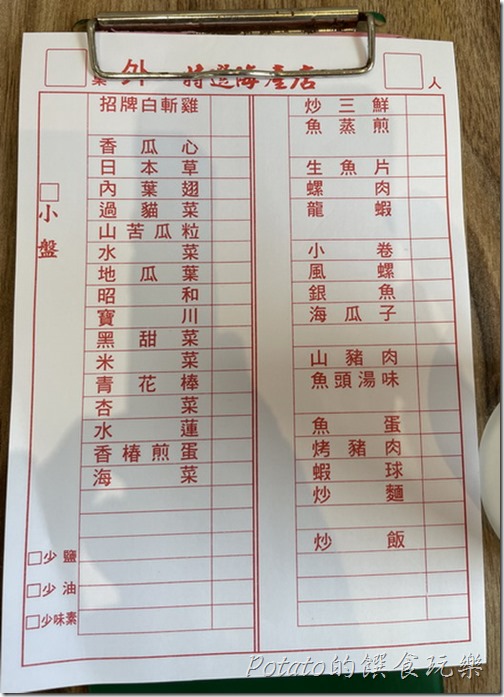 桌 外 特選海產店 人
招牌白斬雞
香瓜心
日本草
內葉翅
過貓菜
山苦瓜粒
水菜
地瓜葉
昭和
寶川
黑甜菜
米菜
青花棒
杏菜
水蓮
香椿煎蛋
海菜
小盤
少鹽
少油
少味素
炒三鮮
魚蒸煎
生魚片
螺肉
龍蝦
小卷
風螺
銀魚
海瓜子
山豬肉
魚頭湯味
魚蛋
烤豬肉
蝦球
炒麵
炒飯
Potato的饌食玩樂